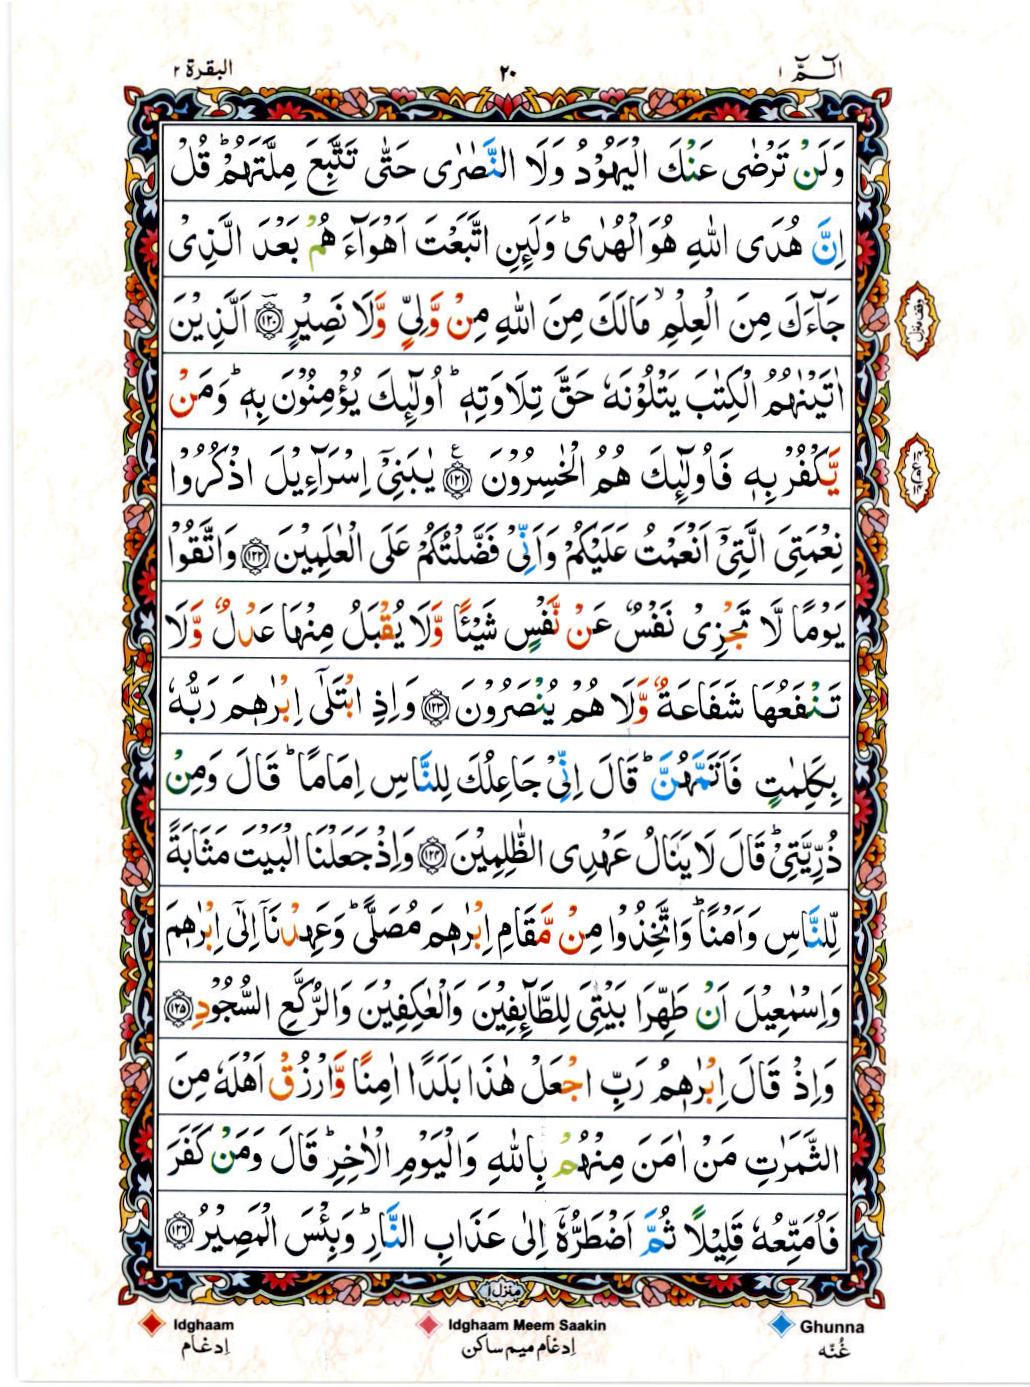 الٓمّٓ ۱
۲۰
البقرة ۲
وَلَنْ تَرْضٰى عَنْكَ الْيَهُوْدُ وَلَا النَّصٰرٰى حَتّٰى تَتَّبِعَ مِلَّتَهُمْ ؕ قُلْ
اِنَّ هُدَى اللّٰهِ هُوَ الْهُدٰى ؕ وَلَىِٕنِ اتَّبَعْتَ اَهْوَآءَ هُمْ بَعْدَ الَّذِىْ
جَآءَكَ مِنَ الْعِلْمِ ۙ مَا لَكَ مِنَ اللّٰهِ مِنْ وَّلِىٍّ وَّلَا نَصِيْرٍ ؔ ﴿۱۲۰﴾ اَلَّذِيْنَ
وقف منزل
اٰتَيْنٰهُمُ الْكِتٰبَ يَتْلُوْنَهٗ حَقَّ تِلَاوَتِهٖ ؕ اُولٰٓىِٕكَ يُؤْمِنُوْنَ بِهٖ ؕ وَمَنْ
يَّكْفُرْ بِهٖ فَاُولٰٓىِٕكَ هُمُ الْخٰسِرُوْنَ ﴿۱۲۱﴾ ع يٰبَنِىْٓ اِسْرَآءِيْلَ اذْكُرُوْا
نِعْمَتِىَ الَّتِىْٓ اَنْعَمْتُ عَلَيْكُمْ وَاَنِّىْ فَضَّلْتُكُمْ عَلَى الْعٰلَمِيْنَ ﴿۱۲۲﴾ وَاتَّقُوْا
يَوْمًا لَّا تَجْزِىْ نَفْسٌ عَنْ نَّفْسٍ شَيْـًٔا وَّلَا يُقْبَلُ مِنْهَا عَدْلٌ وَّلَا
تَنْفَعُهَا شَفَاعَةٌ وَّلَا هُمْ يُنْصَرُوْنَ ﴿۱۲۳﴾ وَاِذِ ابْتَلٰٓى اِبْرٰهٖمَ رَبُّهٗ
بِكَلِمٰتٍ فَاَتَمَّهُنَّ ؕ قَالَ اِنِّىْ جَاعِلُكَ لِلنَّاسِ اِمَامًا ؕ قَالَ وَمِنْ
ذُرِّيَّتِىْ ؕ قَالَ لَا يَنَالُ عَهْدِى الظّٰلِمِيْنَ ﴿۱۲۴﴾ وَاِذْ جَعَلْنَا الْبَيْتَ مَثَابَةً
لِّلنَّاسِ وَاَمْنًا ؕ وَاتَّخِذُوْا مِنْ مَّقَامِ اِبْرٰهٖمَ مُصَلًّى ؕ وَعَهِدْنَآ اِلٰٓى اِبْرٰهٖمَ
وَاِسْمٰعِيْلَ اَنْ طَهِّرَا بَيْتِىَ لِلطَّآىِٕفِيْنَ وَالْعٰكِفِيْنَ وَالرُّكَّعِ السُّجُوْدِ ﴿۱۲۵﴾
وَاِذْ قَالَ اِبْرٰهٖمُ رَبِّ اجْعَلْ هٰذَا بَلَدًا اٰمِنًا وَّارْزُقْ اَهْلَهٗ مِنَ
الثَّمَرٰتِ مَنْ اٰمَنَ مِنْهُمْ بِاللّٰهِ وَالْيَوْمِ الْاٰخِرِ ؕ قَالَ وَمَنْ كَفَرَ
فَاُمَتِّعُهٗ قَلِيْلًا ثُمَّ اَضْطَرُّهٗٓ اِلٰى عَذَابِ النَّارِ ؕ وَبِئْسَ الْمَصِيْرُ ﴿۱۲۶﴾
منزل ۱
Idghaam
Idghaam Meem Saakin
Ghunna
اِدغام
اِدغام ميم ساكن
غُنّه